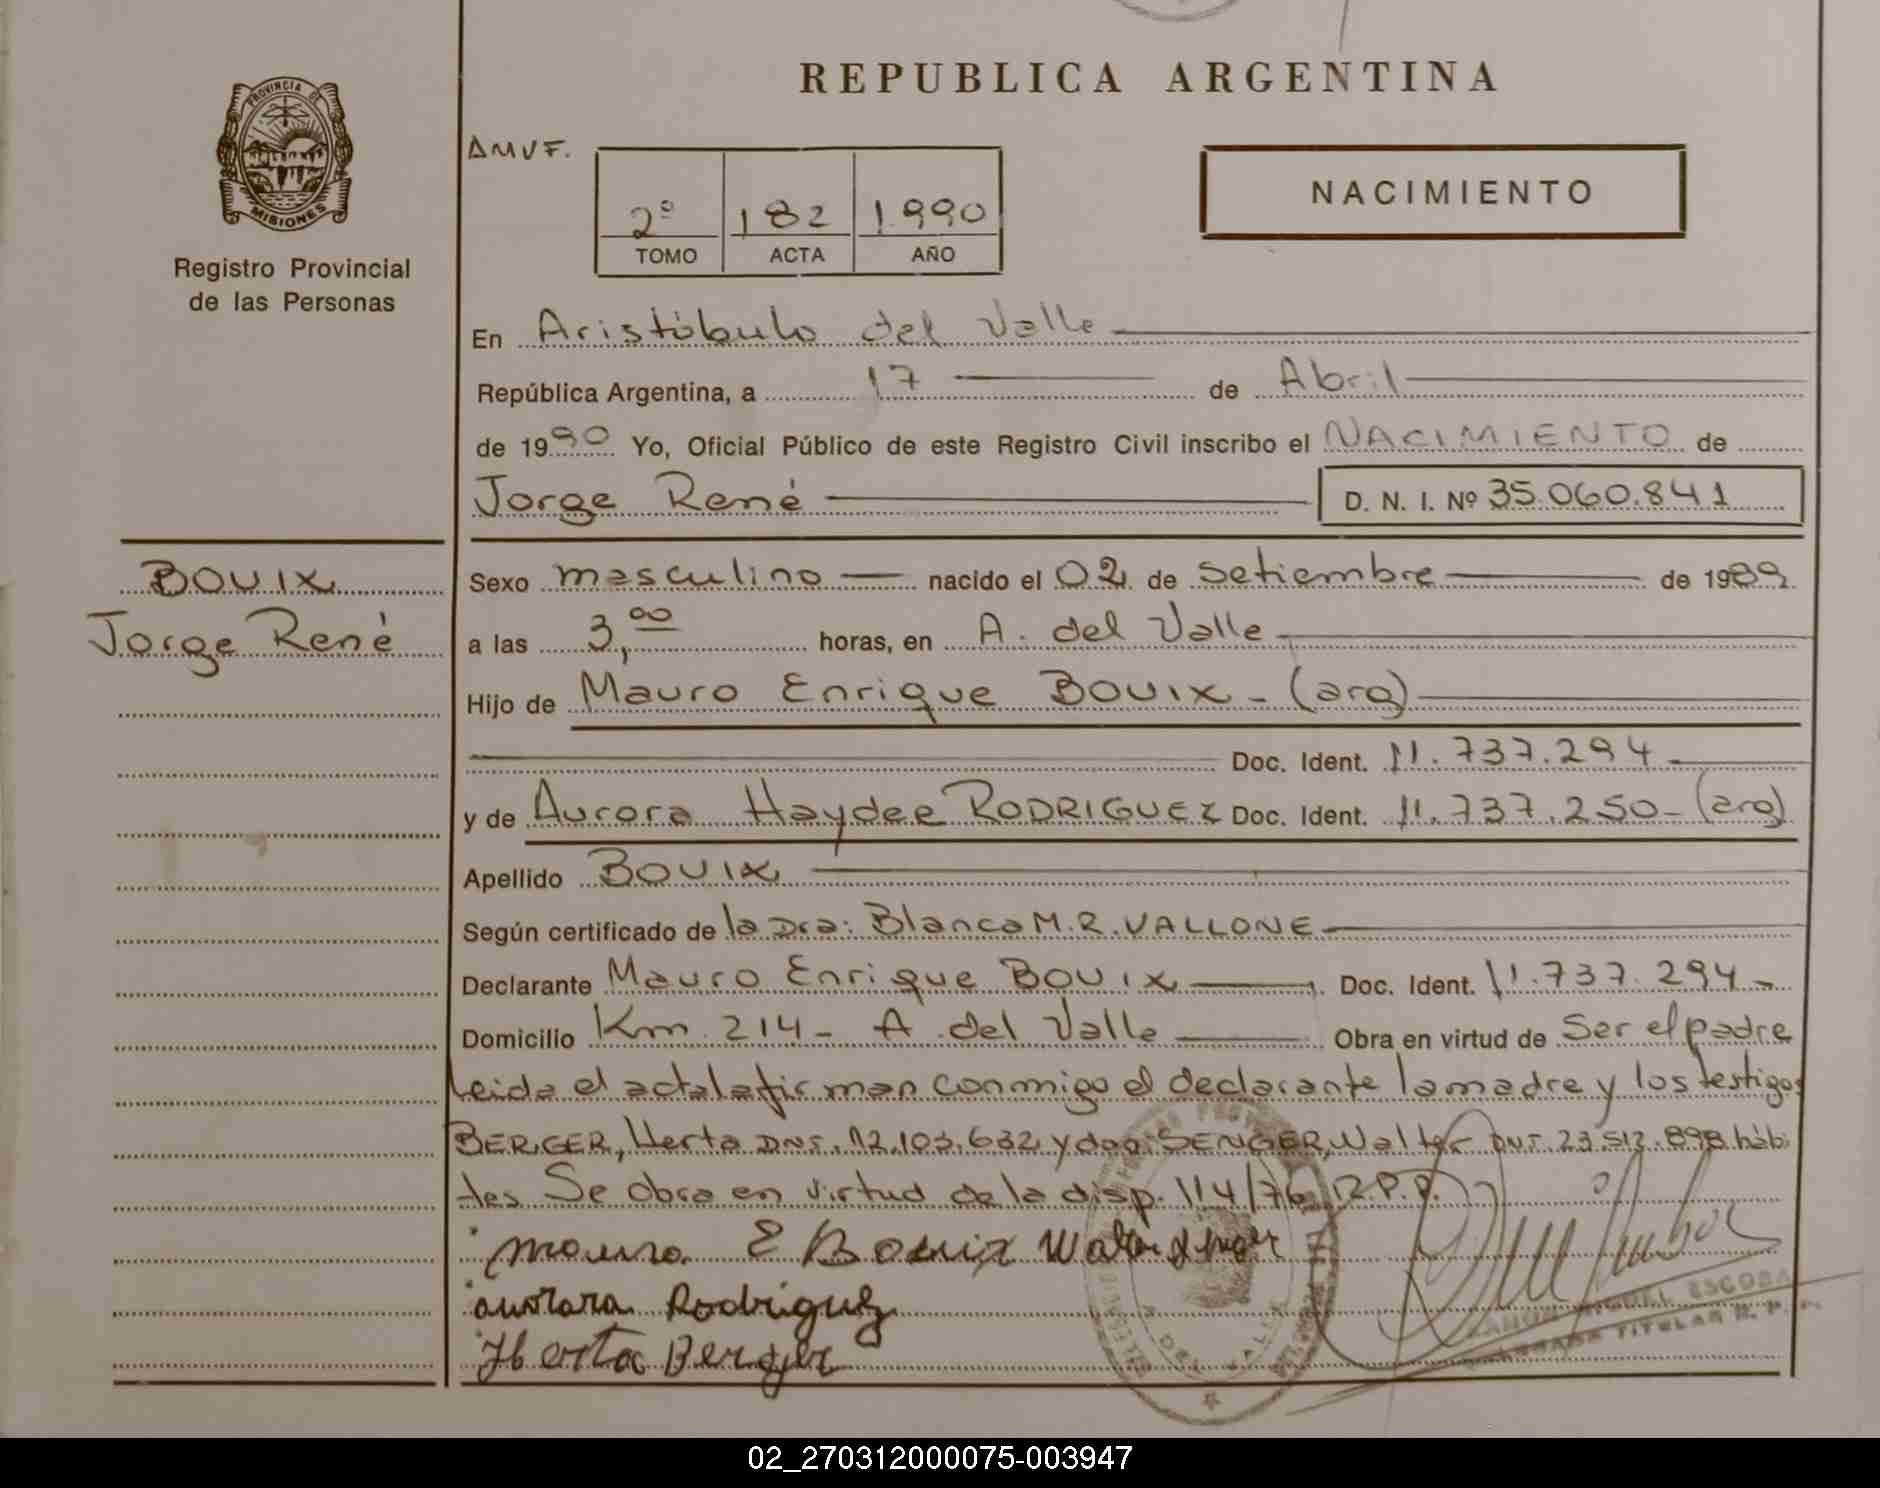 REPUBLICA ARGENTINA
PROVINCIA DE
MISIONES
Registro Provincial
de las Personas
AMVF.
2º 182 1.990
TOMO ACTA AÑO
NACIMIENTO
En Aristóbulo del Valle
República Argentina, a 17 de Abril
de 1990 Yo, Oficial Público de este Registro Civil inscribo el NACIMIENTO de
Jorge René D. N. I. Nº 35.060.841
BOUIX
Jorge René
Sexo masculino nacido el 02 de setiembre de 1989
a las 3,00 horas, en A. del Valle
Hijo de Mauro Enrique BOUIX - (arg)
Doc. Ident. 11.737.294
y de Aurora Haydee RODRIGUEZ Doc. Ident. 11.737.250- (arg)
Apellido BOUIX
Según certificado de la Dra: Blanca M.R. VALLONE
Declarante Mauro Enrique BOUIX Doc. Ident. 11.737.294-
Domicilio Km. 214- A. del Valle Obra en virtud de Ser el padre
Leida el acta la firman conmigo el declarante la madre y los testigos
BERGER, Herta DNI. 12.103.632 y don: SENGER, Walter DNI. 23.512.898 hábi
les. Se obra en virtud de la disp. 114/76 R.P.P.
Mauro E Bouix Walter
aurora Rodriguez
Herta Berger
MIGUEL ESCOBA
TITULAR R. P.
DEL VALLE
02_270312000075-003947